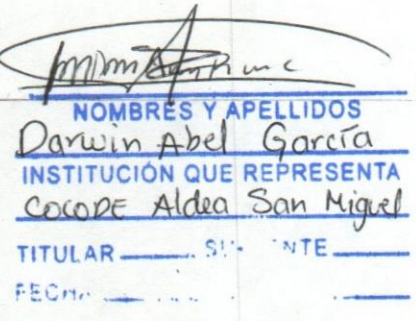 NOMBRES Y APELLIDOS
Darwin Abel García
INSTITUCIÓN QUE REPRESENTA
COCODE Aldea San Miguel
TITULAR